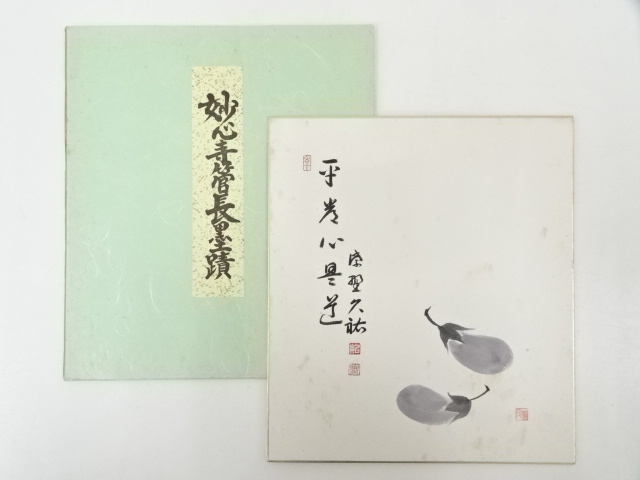 妙心寺管長墨蹟
平常心是道
紫野久祐